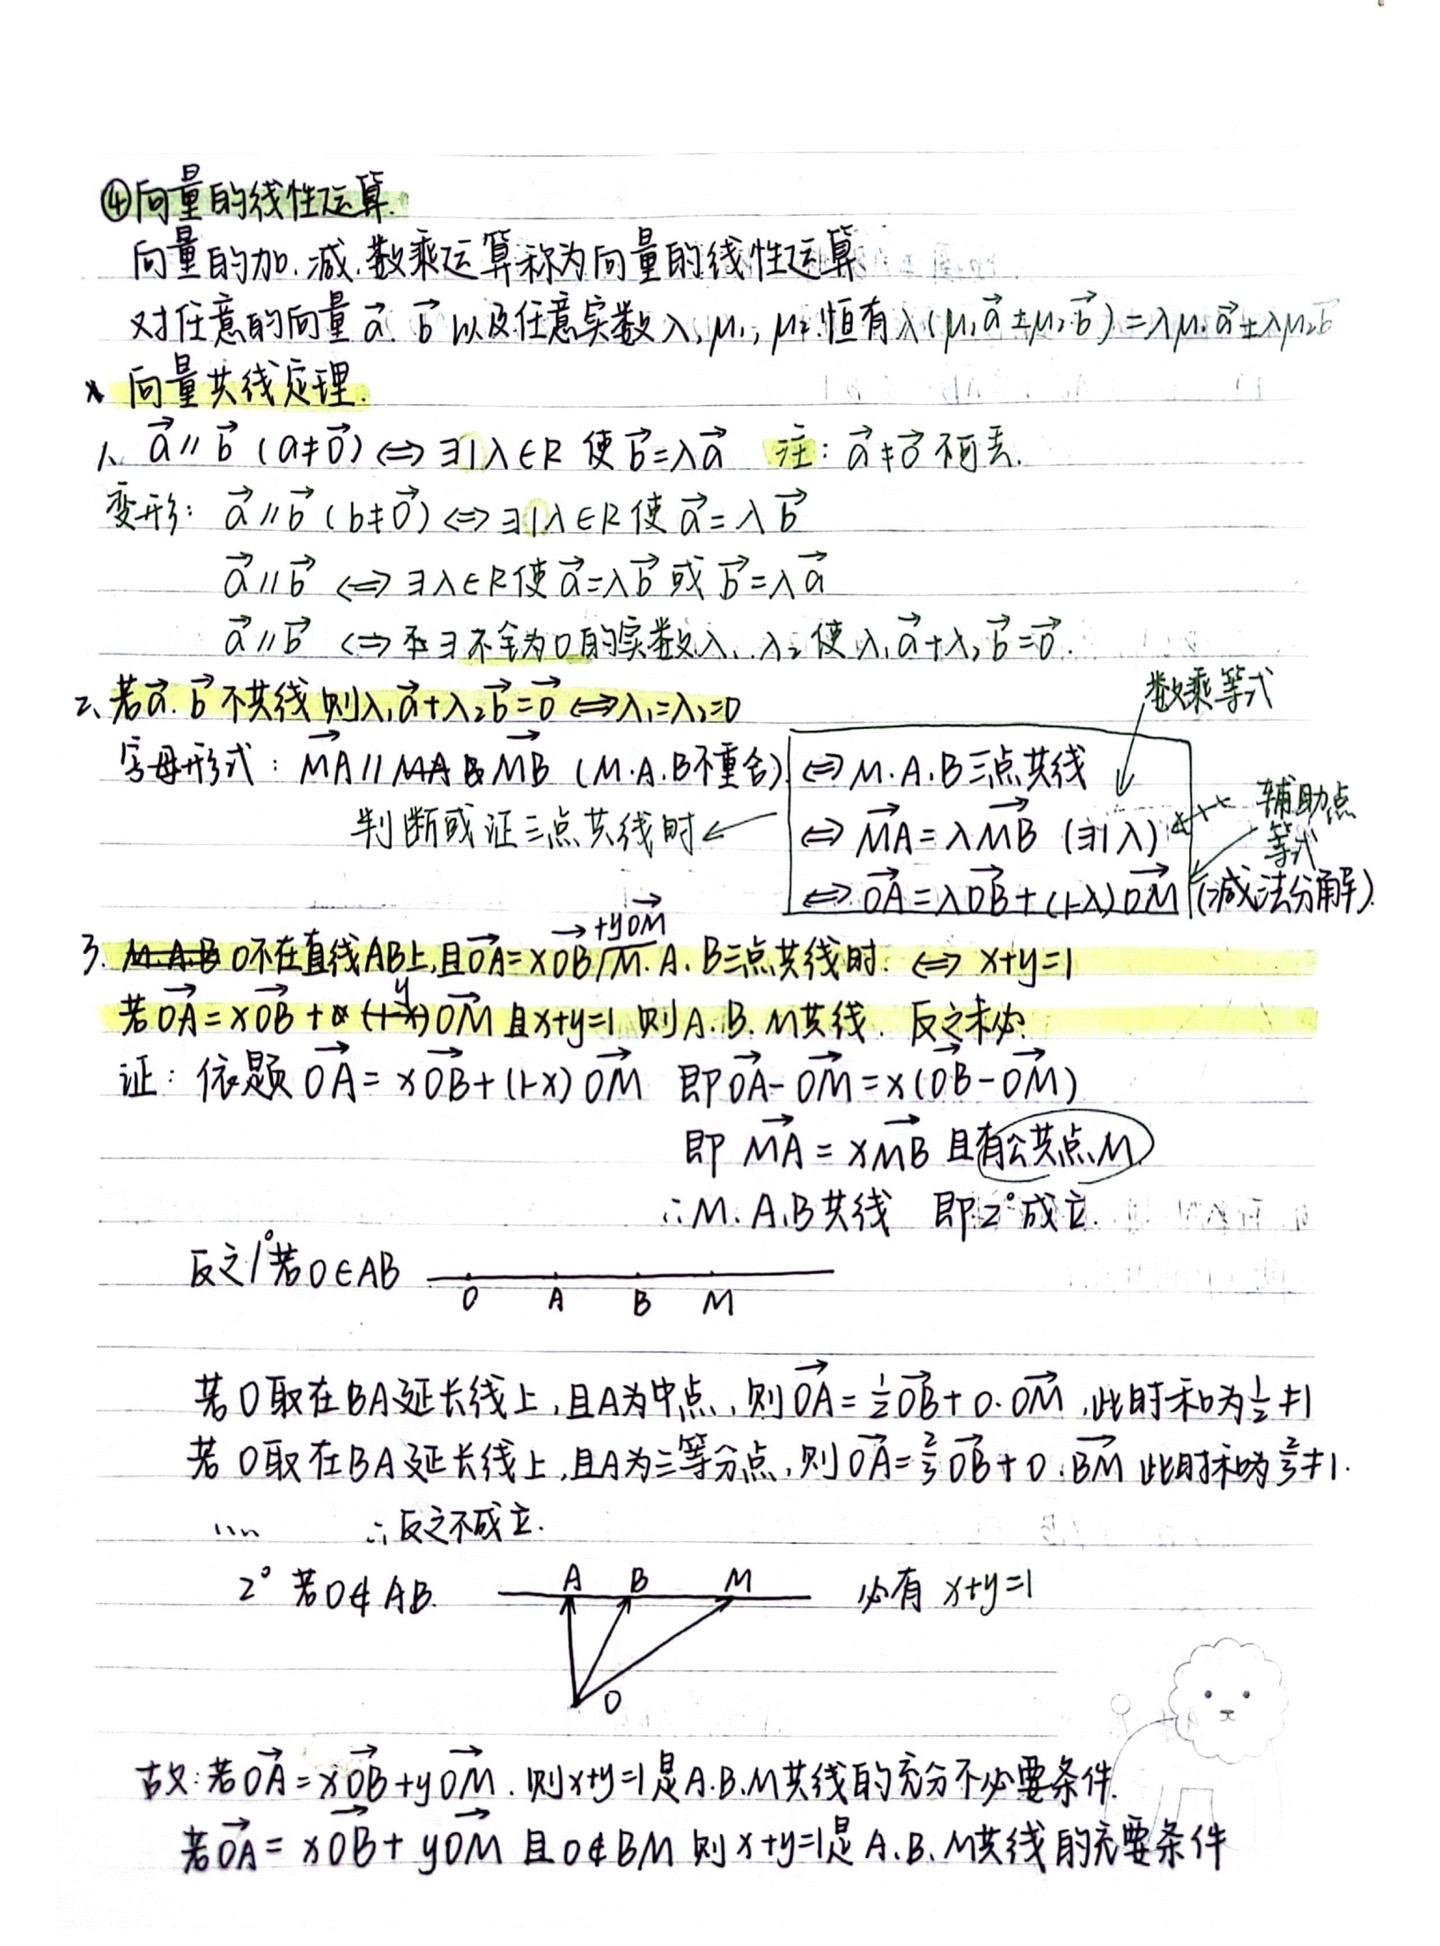 ④向量的线性运算.
向量的加.减.数乘运算称为向量的线性运算
对任意的向量 a⃗. b⃗ 以及任意实数 λ, μ₁, μ₂. 恒有 λ(μ₁a⃗±μ₂b⃗)=λμ₁a⃗±λμ₂b⃗
* 向量共线定理.
1、a⃗∥b⃗ (a≠0⃗) ⇔ ∃|λ∈R 使 b⃗=λa⃗ 注: a⃗≠0⃗ 不可丢.
变形: a⃗∥b⃗ (b≠0⃗) ⇔ ∃|λ∈R 使 a⃗=λb⃗
a⃗∥b⃗ ⇔ ∃λ∈R 使 a⃗=λb⃗ 或 b⃗=λa⃗
a⃗∥b⃗ ⇔ ∃不全为0的实数λ₁.λ₂ 使 λ₁a⃗+λ₂b⃗=0⃗.
2、若a⃗.b⃗不共线 则λ₁a⃗+λ₂b⃗=0⃗ ⇔ λ₁=λ₂=0
数乘等式
字母形式: MA⃗∥MB⃗ (M.A.B不重合) ⇔ M.A.B三点共线
判断或证三点共线时 ⇔ MA⃗=λMB⃗ (∃|λ)
辅助点
等式
⇔ OA⃗=λOB⃗+(1-λ)OM⃗ (减法分解).
3. O不在直线AB上,且OA⃗=xOB⃗+yOM⃗/M.A.B三点共线时. ⇔ x+y=1
若OA⃗=xOB⃗+yOM⃗且x+y=1 则A.B.M共线. 反之未必.
证: 依题OA⃗=xOB⃗+(1-x)OM⃗ 即OA⃗-OM⃗=x(OB⃗-OM⃗)
即 MA⃗=xMB⃗ 且有公共点M
∴M.A.B共线 即2°成立.
反之1°若O∈AB
O A B M
若O取在BA延长线上,且A为中点,则OA⃗=½OB⃗+0·OM⃗,此时和为½≠1
若O取在BA延长线上,且A为三等分点,则OA⃗=⅔OB⃗+0·BM⃗ 此时和为⅔≠1.
…… ∴反之不成立.
2° 若O∉AB. A B M 必有 x+y=1
O
故:若OA⃗=xOB⃗+yOM⃗.则x+y=1是A.B.M共线的充分不必要条件.
若OA⃗=xOB⃗+yOM⃗ 且O∉BM 则x+y=1是A.B.M共线的充要条件